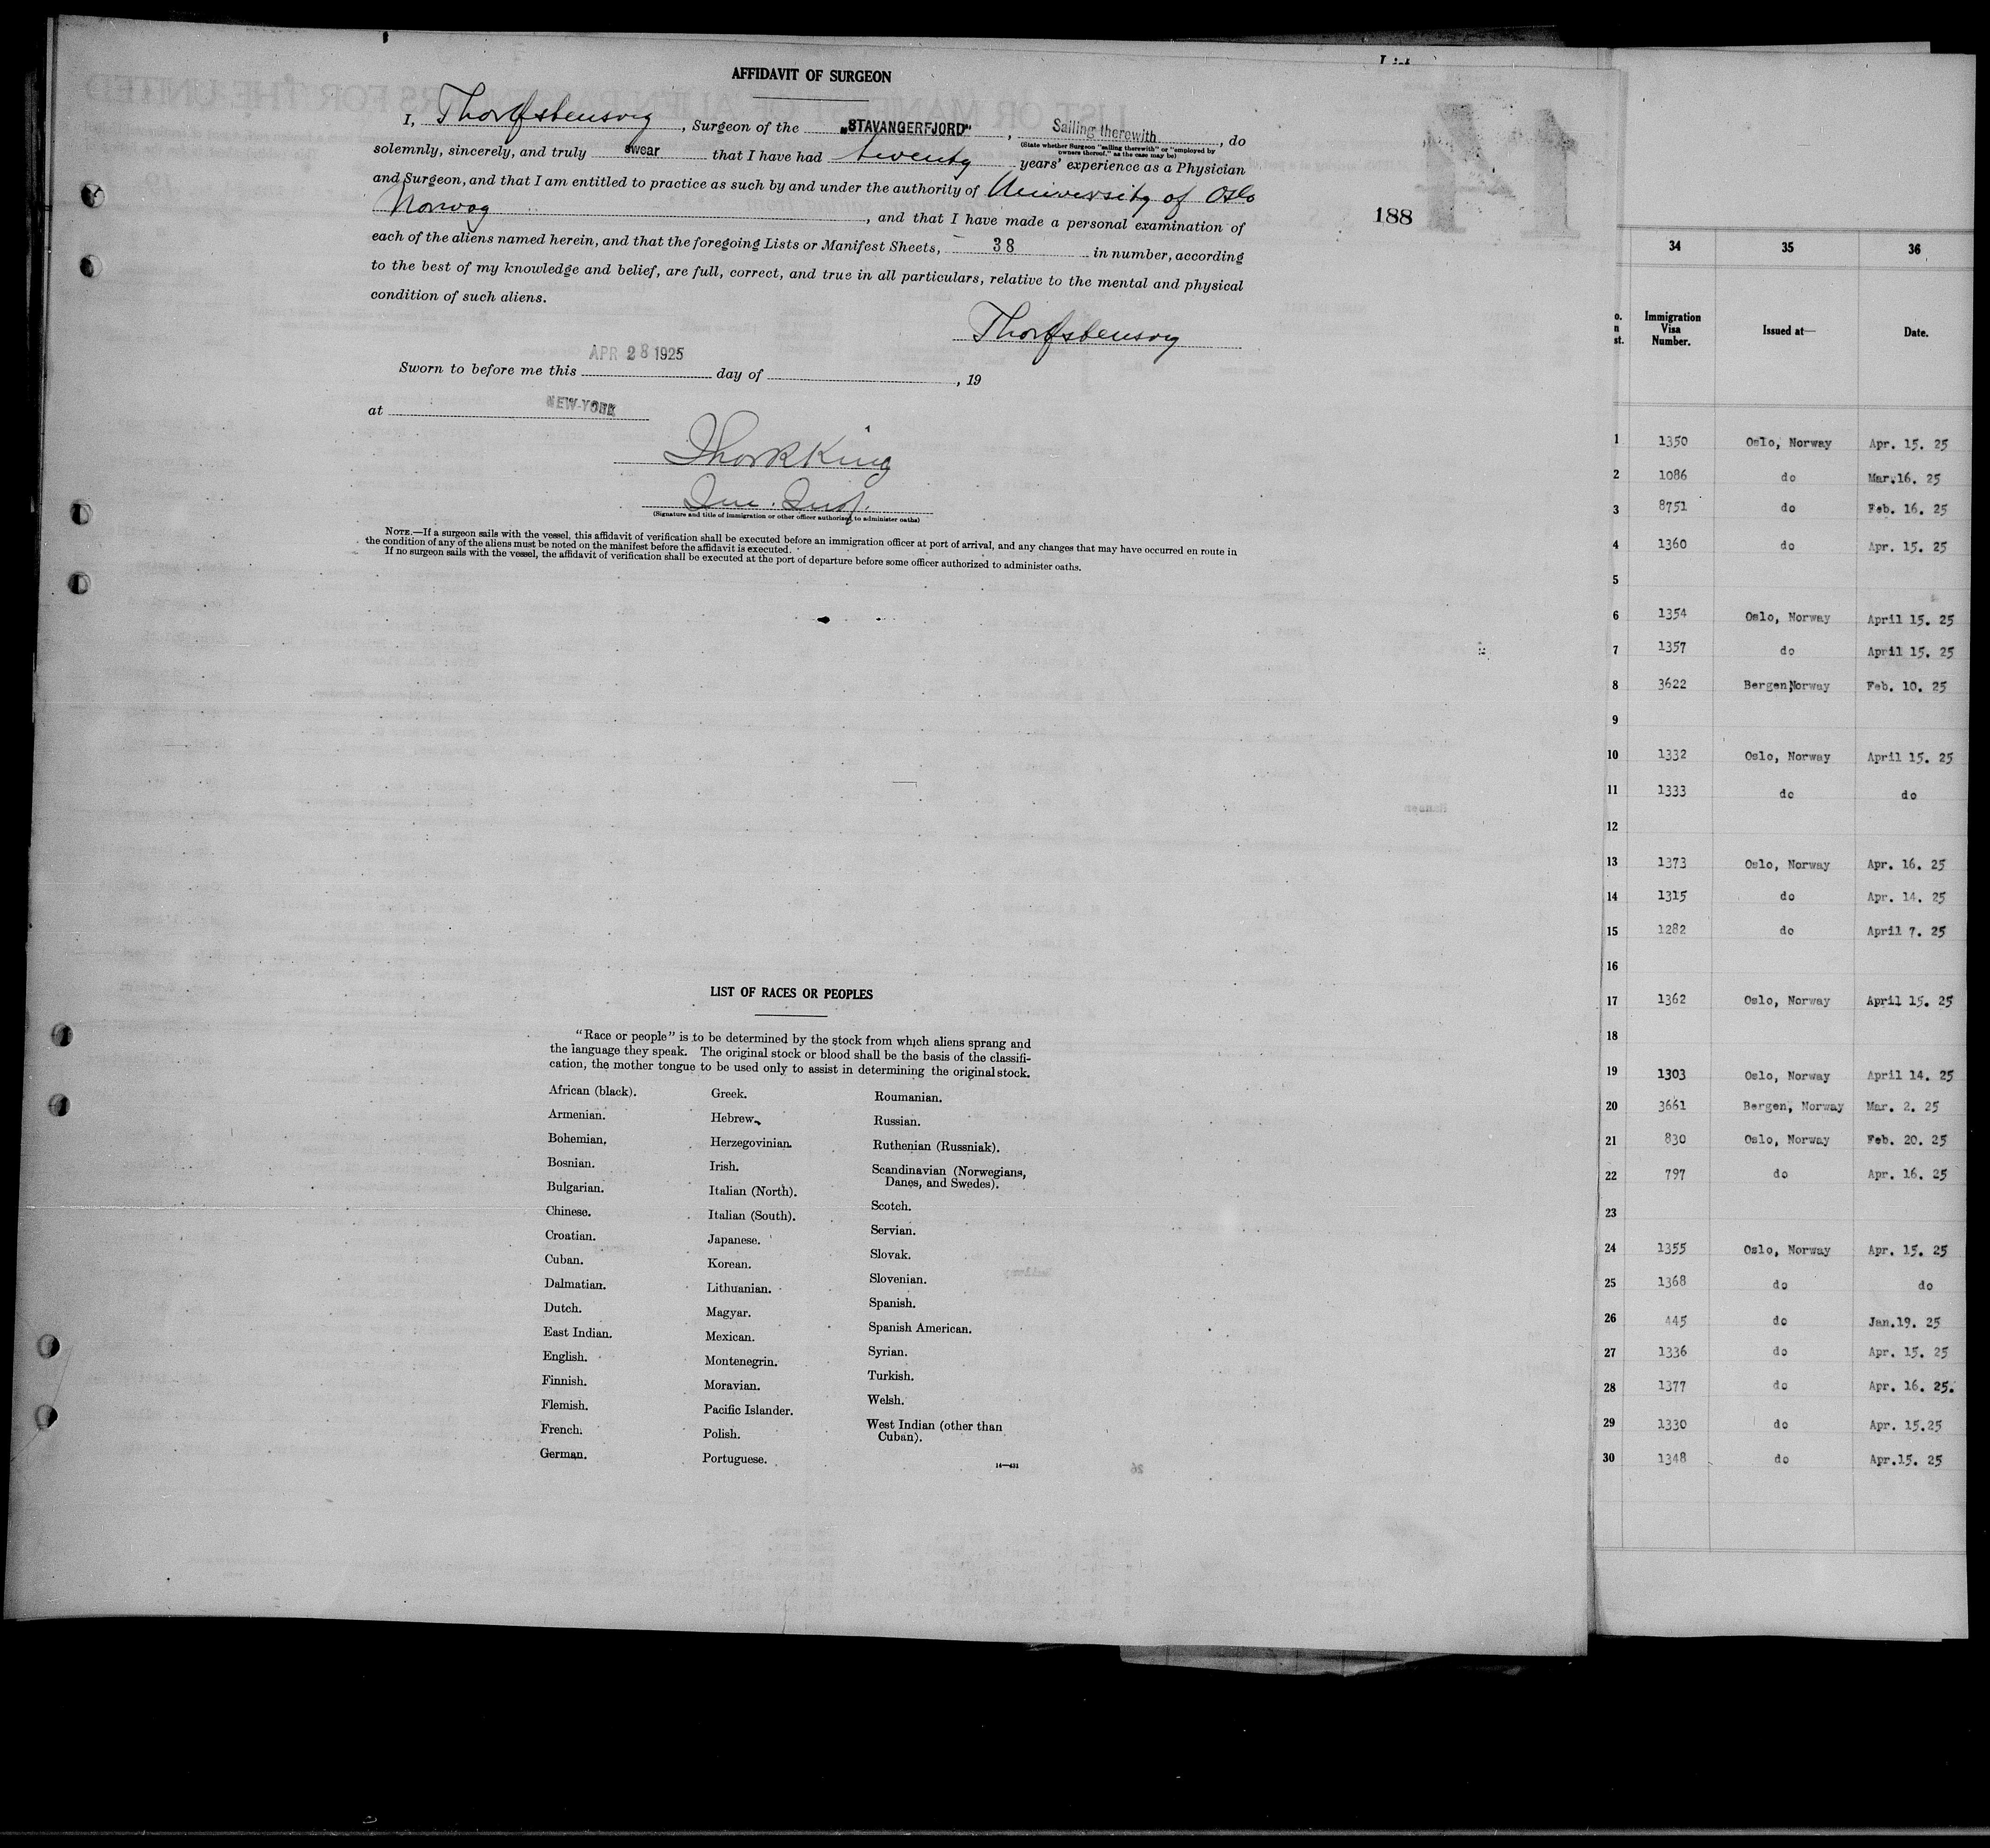 AFFIDAVIT OF SURGEON
I, Thorfstensvig, Surgeon of the "STAVANGERFJORD", Sailing therewith, do
(State whether Surgeon "sailing therewith" or "employed by
owners thereof," as the case may be)
solemnly, sincerely, and truly swear that I have had twenty years' experience as a Physician
and Surgeon, and that I am entitled to practice as such by and under the authority of University of Oslo
Norway, and that I have made a personal examination of
each of the aliens named herein, and that the foregoing Lists or Manifest Sheets, 38 in number, according
to the best of my knowledge and belief, are full, correct, and true in all particulars, relative to the mental and physical
condition of such aliens.
Thorfstensvig
APR 28 1925
Sworn to before me this day of , 19
at NEW-YORK
King
(Signature and title of immigration or other officer authorized to administer oaths)
NOTE.—If a surgeon sails with the vessel, this affidavit of verification shall be executed before an immigration officer at port of arrival, and any changes that may have occurred en route in
the condition of any of the aliens must be noted on the manifest before the affidavit is executed.
If no surgeon sails with the vessel, the affidavit of verification shall be executed at the port of departure before some officer authorized to administer oaths.
188
LIST OF RACES OR PEOPLES
"Race or people" is to be determined by the stock from which aliens sprang and
the language they speak. The original stock or blood shall be the basis of the classifi-
cation, the mother tongue to be used only to assist in determining the original stock.
African (black).
Armenian.
Bohemian.
Bosnian.
Bulgarian.
Chinese.
Croatian.
Cuban.
Dalmatian.
Dutch.
East Indian.
English.
Finnish.
Flemish.
French.
German.
Greek.
Hebrew.
Herzegovinian.
Irish.
Italian (North).
Italian (South).
Japanese.
Korean.
Lithuanian.
Magyar.
Mexican.
Montenegrin.
Moravian.
Pacific Islander.
Polish.
Portuguese.
Roumanian.
Russian.
Ruthenian (Russniak).
Scandinavian (Norwegians,
Danes, and Swedes).
Scotch.
Servian.
Slovak.
Slovenian.
Spanish.
Spanish American.
Syrian.
Turkish.
Welsh.
West Indian (other than
Cuban).
14—431
34 35 36
Immigration Visa Number. Issued at— Date.
1 1350 Oslo, Norway Apr. 15. 25
2 1086 do Mar.16. 25
3 8751 do Feb. 16. 25
4 1360 do Apr. 15. 25
5
6 1354 Oslo, Norway April 15. 25
7 1357 do April 15. 25
8 3622 Bergen,Norway Feb. 10. 25
9
10 1332 Oslo, Norway April 15. 25
11 1333 do do
12
13 1373 Oslo, Norway Apr. 16. 25
14 1315 do Apr. 14. 25
15 1282 do April 7. 25
16
17 1362 Oslo, Norway April 15. 25
18
19 1303 Oslo, Norway April 14. 25
20 3661 Bergen, Norway Mar. 2. 25
21 830 Oslo, Norway Feb. 20. 25
22 797 do Apr. 16. 25
23
24 1355 Oslo, Norway Apr. 15. 25
25 1368 do do
26 445 do Jan.19. 25
27 1336 do Apr. 15. 25
28 1377 do Apr. 16. 25.
29 1330 do Apr. 15.25
30 1348 do Apr.15. 25